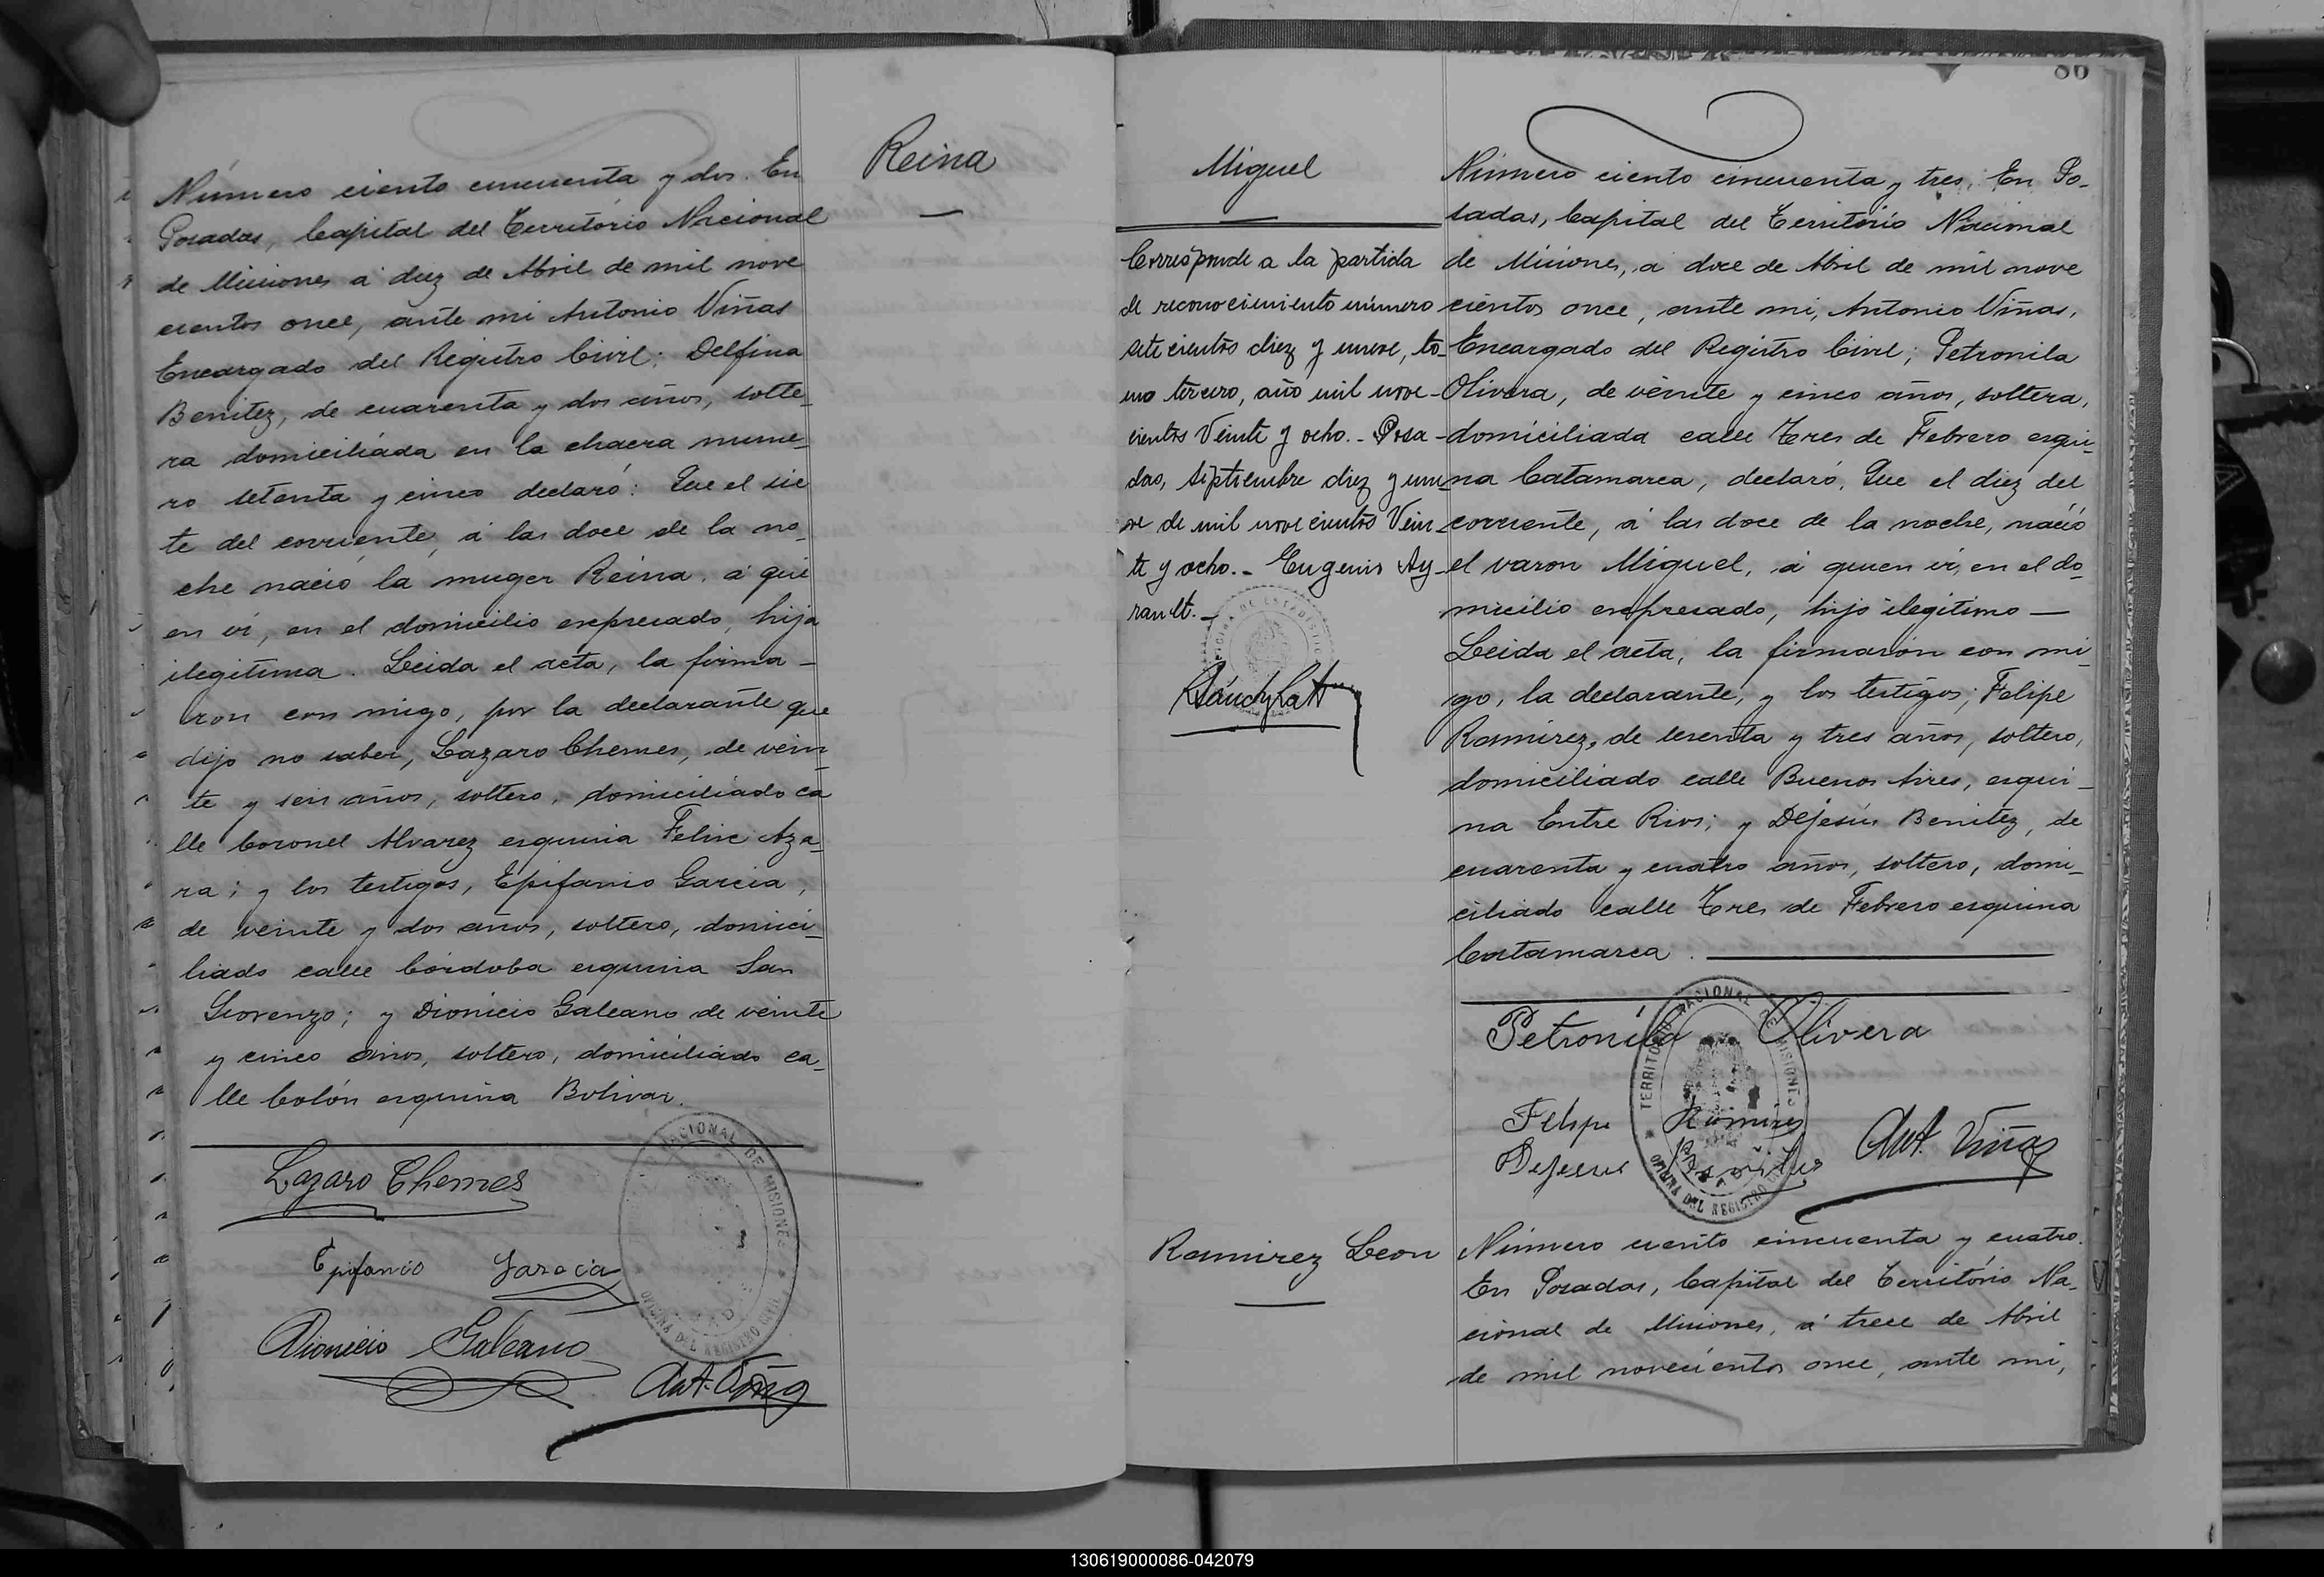 Número ciento cincuenta y dos. En
Posadas, Capital del Territorio Nacional
de Misiones á diez de Abril de mil nove
cientos once, ante mi Antonio Viñas
Encargado del Registro Civil: Delfina
Benitez, de cuarenta y dos años, solte_
ra domiciliada en la chacra nume_
ro setenta y cinco declaró: Que el sie
te del corriente, á las doce de la no_
che nació la muger Reina, á qui
en vi, en el domicilio expresado, hija
ilegitima. Leida el acta, la firma-
ron con migo, por la declarante que
dijo no saber, Lazaro Chemes, de vein_
te y seis años, soltero, domiciliado ca
lle Coronel Alvarez esquina Felix Aza_
ra; y los testigos, Epifanio Garcia,
de veinte y dos años, soltero, domici_
liado calle Córdoba esquina San
Lorenzo; y Dionicio Galeano de veinte
y cinco años, soltero, domiciliado ca_
lle Colón esquina Bolivar.
Lazaro Chemes
Epifanio Garacia
Dionicio Galeano
Ant. Viñas
NACIONAL DE MISIONES
OFICINA DEL REGISTRO CIVIL
Reina
86
Miguel
Corresponde a la partida
de reconocimiento número
sete cientos diez y nueve, to_
mo tercero, año mil nove-
cientos Veinte y ocho.- Posa-
das, Septiembre diez y nue_
ve de mil nove cientos Vein_
te y ocho.- Eugenio Ay-
rault.-
Número ciento cincuenta y tres, En Po-
sadas, Capital del Territorio Nacional
de Misiones, á doce de Abril de mil nove
cientos once, ante mi, Antonio Viñas,
Encargado del Registro Civil; Petronila
Olivera, de veinte y cinco años, soltera,
domiciliada calle Tres de Febrero esqui_
na Catamarca, declaró, Que el diez del
corriente, á las doce de la noche, nació
el varon Miguel, á quien vi, en el do_
micilio expresado, hijo ilegitimo —
Leida el acta, la firmarón con mi_
go, la declarante, y los testigos; Felipe
Ramirez, de sesenta y tres años, soltero,
domiciliado calle Buenos Aires, esqui_
na Entre Rios; y Dejesús Benitez, de
cuarenta y cuatro años, soltero, domi_
ciliado calle Tres de Febrero esquina
Catamarca.
Petronila Olivera
Felipe Ramires
Dejesus
Ant. Viñas
TERRITORIO NACIONAL DE MISIONES
OFICINA DEL REGISTRO CIVIL
Ramirez Leon
Número ciento cincuenta y cuatro.
En Posadas, Capital del Territorio Na_
cional de Misiones, á trece de Abril
de mil novecientos once, ante mi,
130619000086-042079